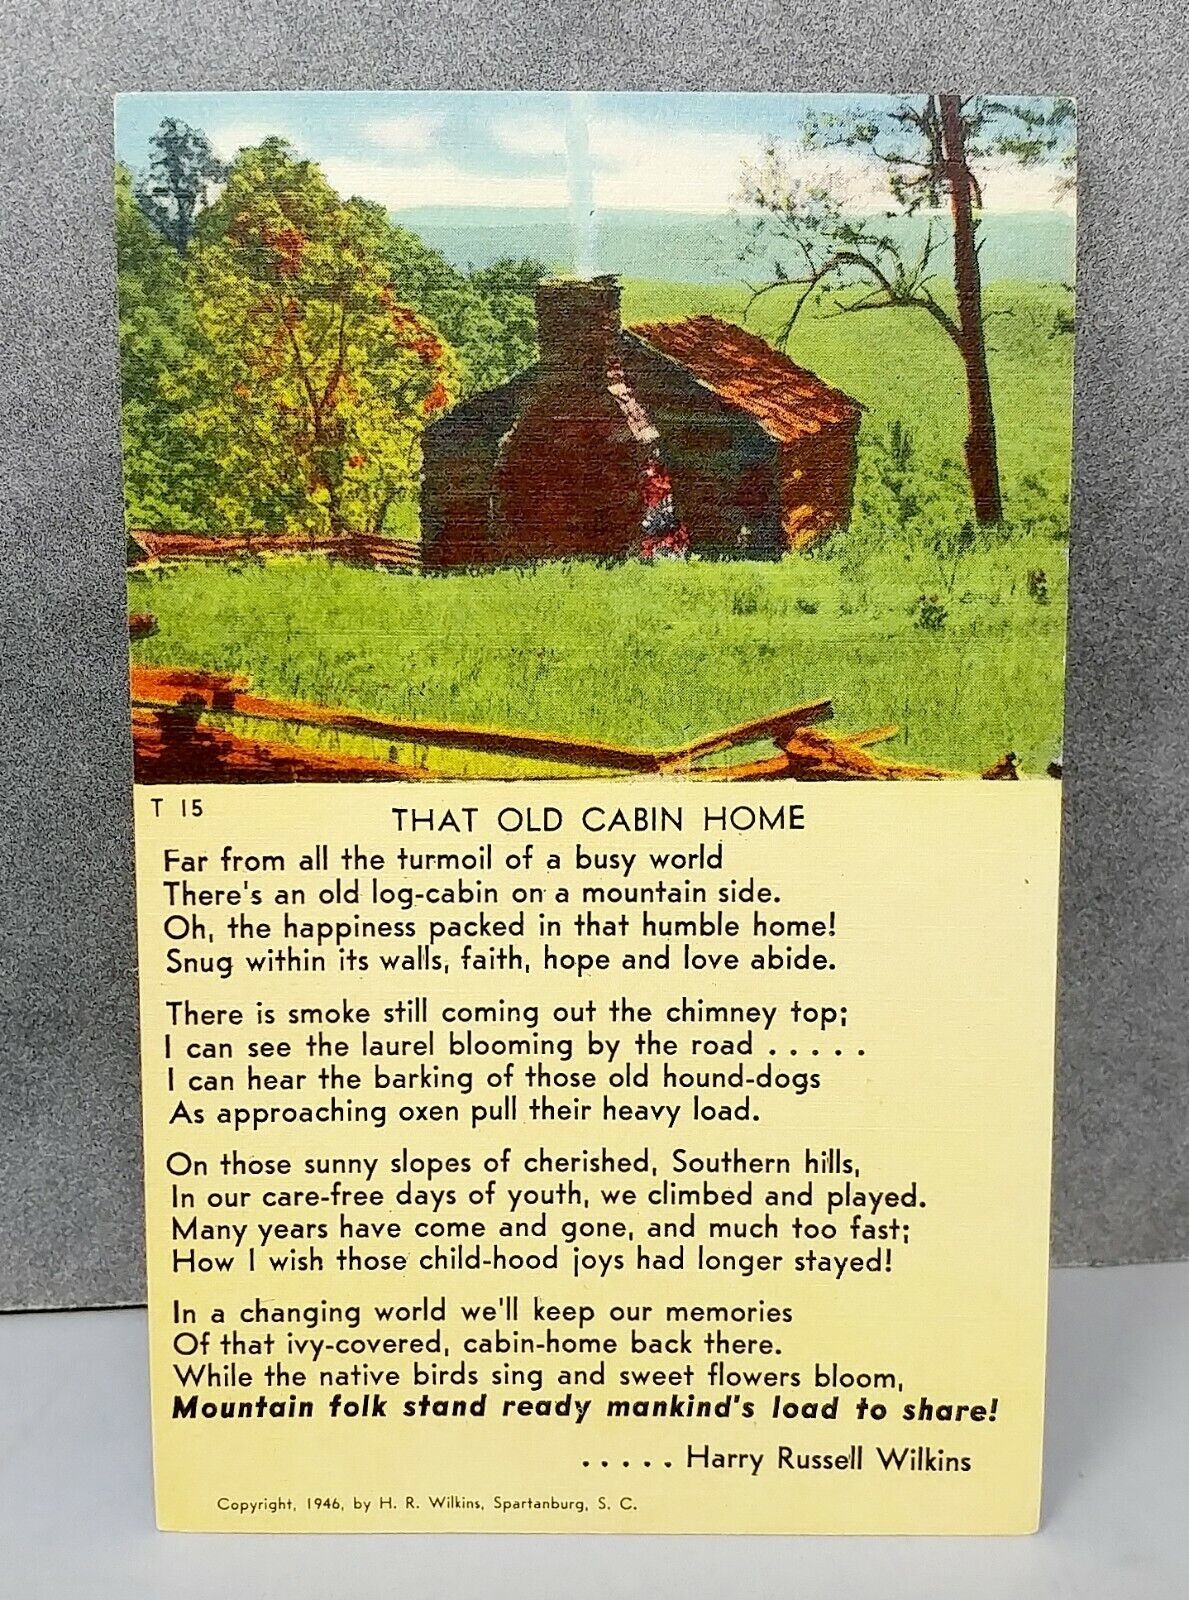 T 15
THAT OLD CABIN HOME
Far from all the turmoil of a busy world
There's an old log-cabin on a mountain side.
Oh, the happiness packed in that humble home!
Snug within its walls, faith, hope and love abide.
There is smoke still coming out the chimney top;
I can see the laurel blooming by the road . . . . .
I can hear the barking of those old hound-dogs
As approaching oxen pull their heavy load.
On those sunny slopes of cherished, Southern hills,
In our care-free days of youth, we climbed and played.
Many years have come and gone, and much too fast;
How I wish those child-hood joys had longer stayed!
In a changing world we'll keep our memories
Of that ivy-covered, cabin-home back there.
While the native birds sing and sweet flowers bloom,
Mountain folk stand ready mankind's load to share!
. . . . . Harry Russell Wilkins
Copyright, 1946, by H. R. Wilkins, Spartanburg, S. C.